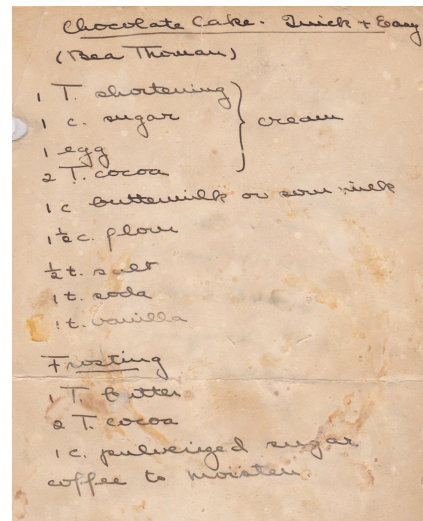 Chocolate Cake - Quick + Easy
(Bea Thoman)
1 T. shortening
1 c. sugar } cream
1 egg
2 T. cocoa
1 c buttermilk or sour milk
1 ½ c. flour
½ t. salt
1 t. soda
1 t. vanilla
Frosting
1 T butter
2 T. cocoa
1 c. pulverized sugar
coffee to moisten